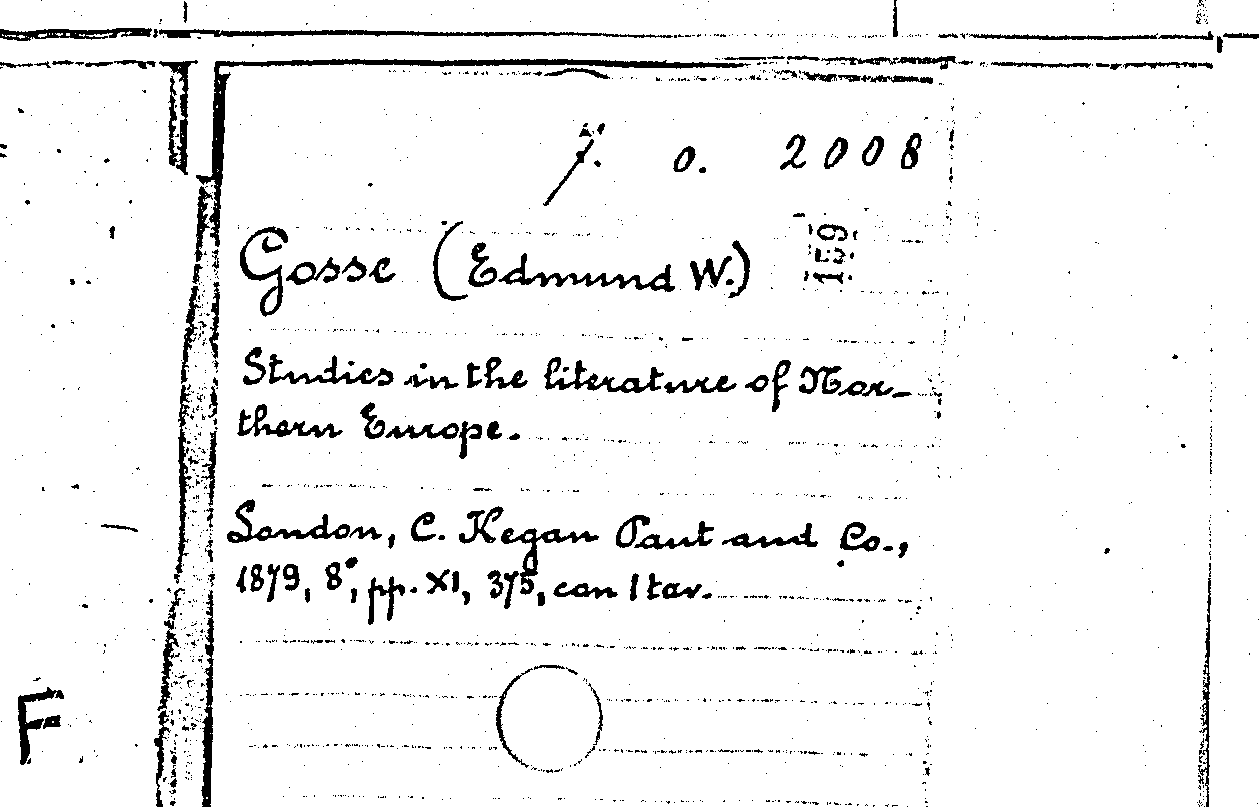 7. o. 2008
Gosse (Edmund W.)
159
Studies in the literature of Nor-
thern Europe.
London, C. Kegan Paut and Co.,
1879, 8°, pp. XI, 375, con 1 tav.
F